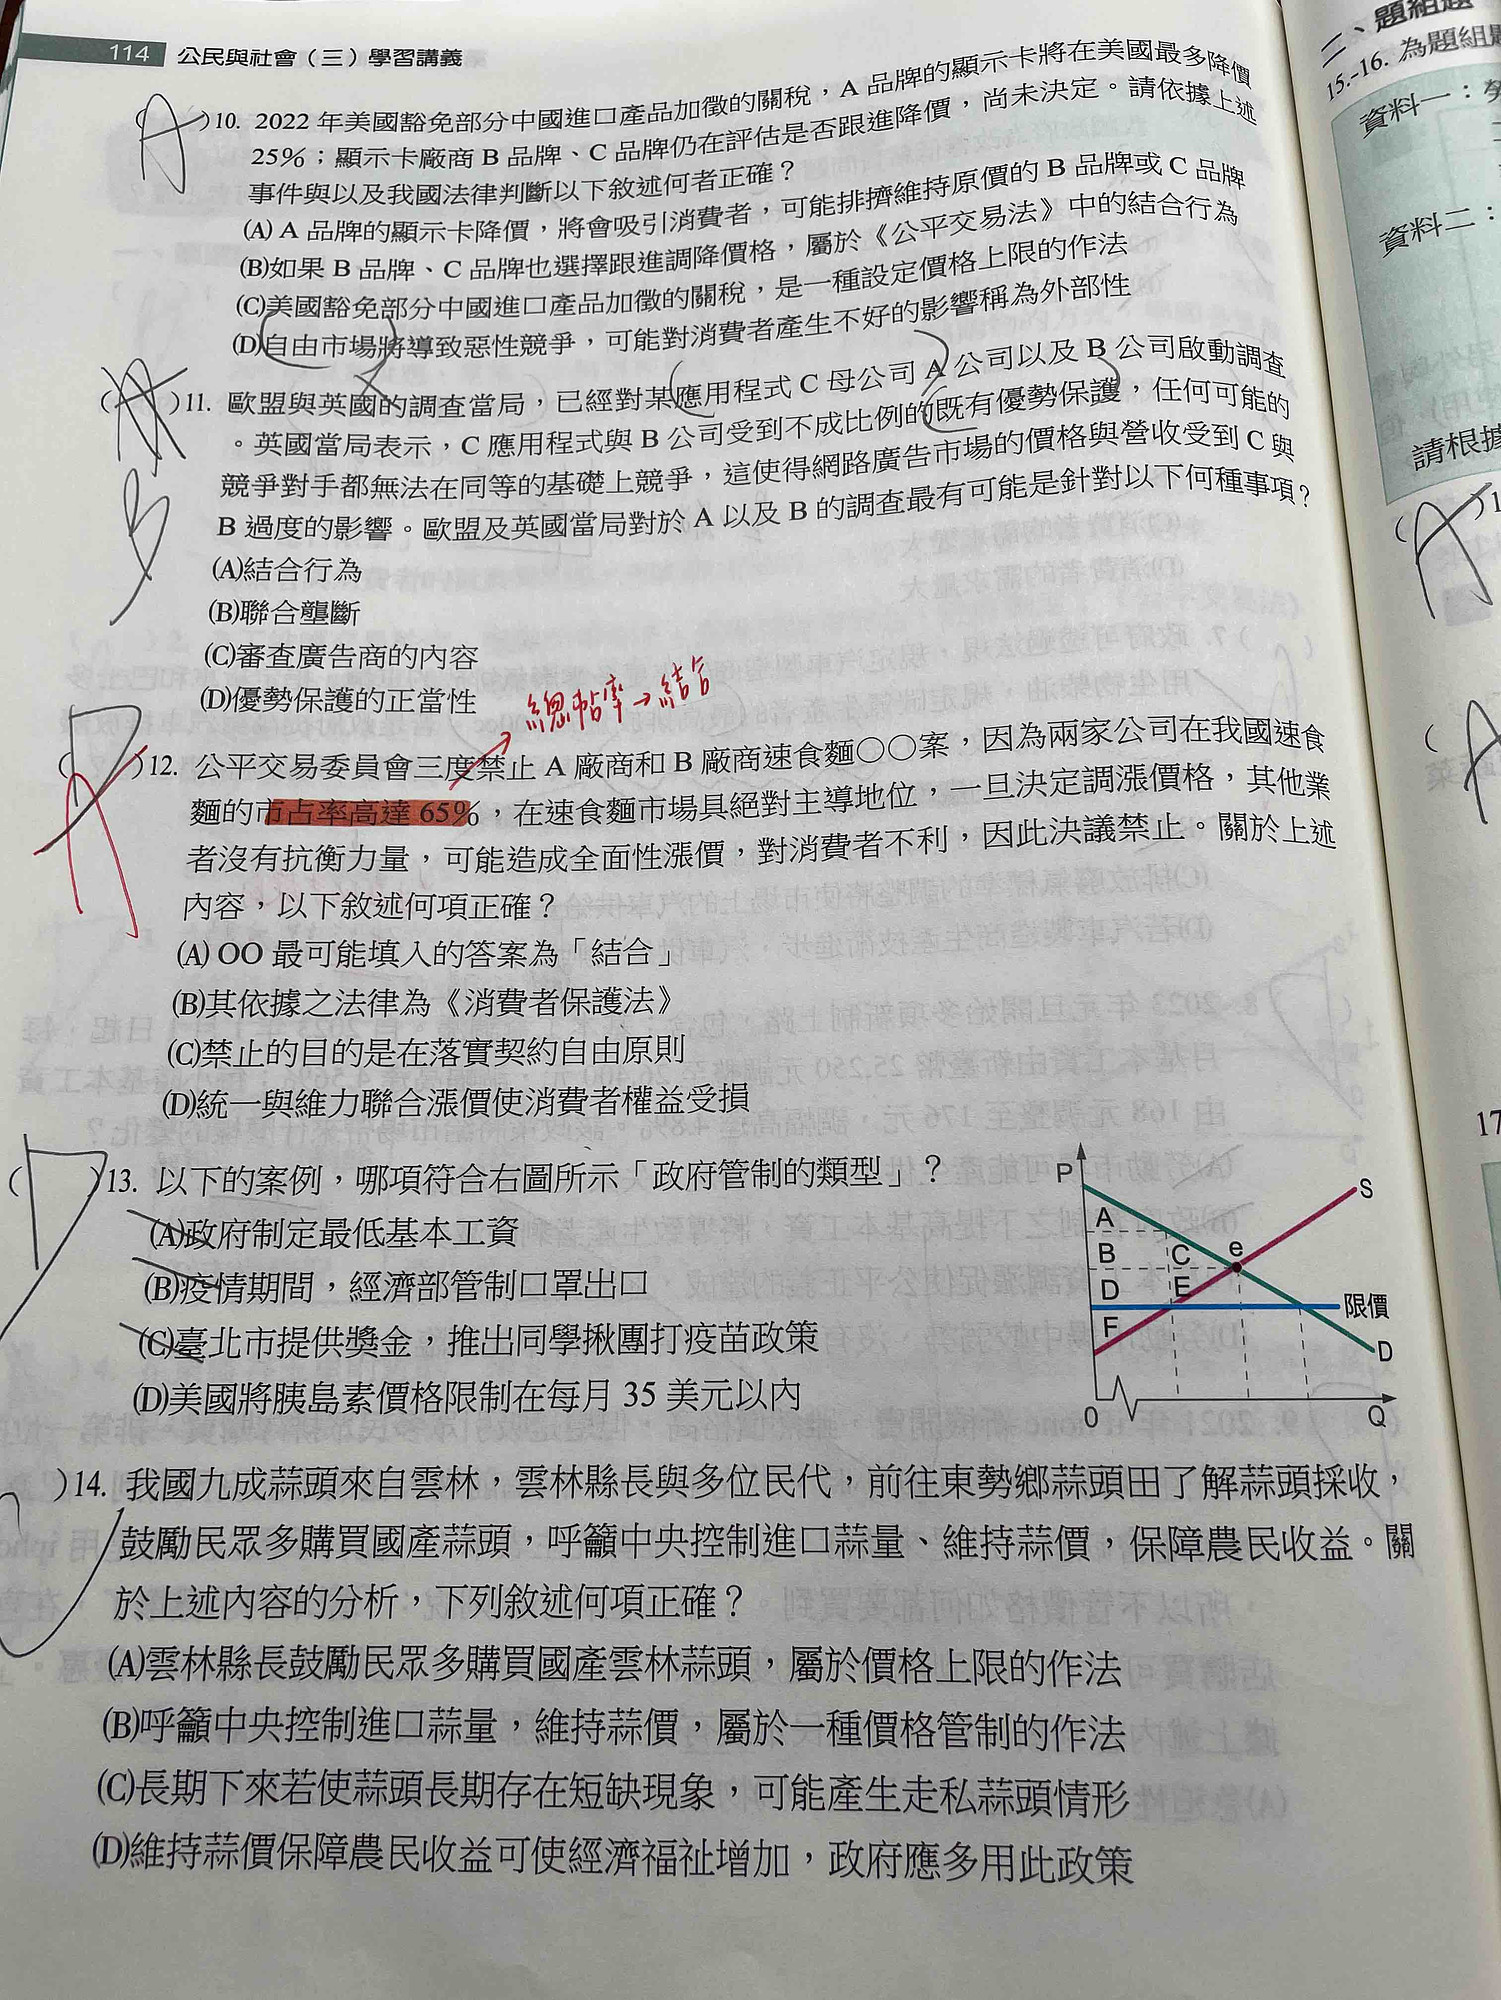 114 公民與社會（三）學習講義
(A)10. 2022 年美國豁免部分中國進口產品加徵的關稅，A 品牌的顯示卡將在美國最多降價
25%；顯示卡廠商 B 品牌、C 品牌仍在評估是否跟進降價，尚未決定。請依據上述
事件與以及我國法律判斷以下敘述何者正確？
(A) A 品牌的顯示卡降價，將會吸引消費者，可能排擠維持原價的 B 品牌或 C 品牌
(B)如果 B 品牌、C 品牌也選擇跟進調降價格，屬於《公平交易法》中的結合行為
(C)美國豁免部分中國進口產品加徵的關稅，是一種設定價格上限的作法
(D)自由市場將導致惡性競爭，可能對消費者產生不好的影響稱為外部性
( )11. 歐盟與英國的調查當局，已經對某應用程式 C 母公司 A 公司以及 B 公司啟動調查
。英國當局表示，C 應用程式與 B 公司受到不成比例的既有優勢保護，任何可能的
競爭對手都無法在同等的基礎上競爭，這使得網路廣告市場的價格與營收受到 C 與
B 過度的影響。歐盟及英國當局對於 A 以及 B 的調查最有可能是針對以下何種事項？
B
(A)結合行為
(B)聯合壟斷
(C)審查廣告商的內容
(D)優勢保護的正當性
總帖率→結合
(A)12. 公平交易委員會三度禁止 A 廠商和 B 廠商速食麵○○案，因為兩家公司在我國速食
麵的市占率高達 65%，在速食麵市場具絕對主導地位，一旦決定調漲價格，其他業
者沒有抗衡力量，可能造成全面性漲價，對消費者不利，因此決議禁止。關於上述
內容，以下敘述何項正確？
(A) OO 最可能填入的答案為「結合」
(B)其依據之法律為《消費者保護法》
(C)禁止的目的是在落實契約自由原則
(D)統一與維力聯合漲價使消費者權益受損
(D)13. 以下的案例，哪項符合右圖所示「政府管制的類型」？
(A)政府制定最低基本工資
(B)疫情期間，經濟部管制口罩出口
(C)臺北市提供獎金，推出同學揪團打疫苗政策
(D)美國將胰島素價格限制在每月 35 美元以內
P
S
A
B C e
D E
限價
F
D
0 Q
)14. 我國九成蒜頭來自雲林，雲林縣長與多位民代，前往東勢鄉蒜頭田了解蒜頭採收，
鼓勵民眾多購買國產蒜頭，呼籲中央控制進口蒜量、維持蒜價，保障農民收益。關
於上述內容的分析，下列敘述何項正確？
(A)雲林縣長鼓勵民眾多購買國產雲林蒜頭，屬於價格上限的作法
(B)呼籲中央控制進口蒜量，維持蒜價，屬於一種價格管制的作法
(C)長期下來若使蒜頭長期存在短缺現象，可能產生走私蒜頭情形
(D)維持蒜價保障農民收益可使經濟福祉增加，政府應多用此政策
二、題組題
15.-16. 為題組
資料一：
資料二：
請根據
(A)1
(
17